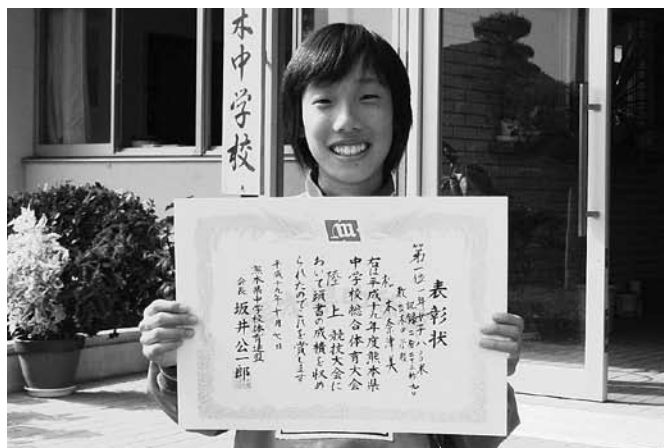 木中学校
表彰状
第一位
一年女子
右は平成十九年度熊本県
中学校総合体育大会
陸上競技大会に
おいて頭書の成績を収め
られたのでこれを賞します
平成十九年十月七日
熊本県中学校体育連盟
会長 坂井公一郎